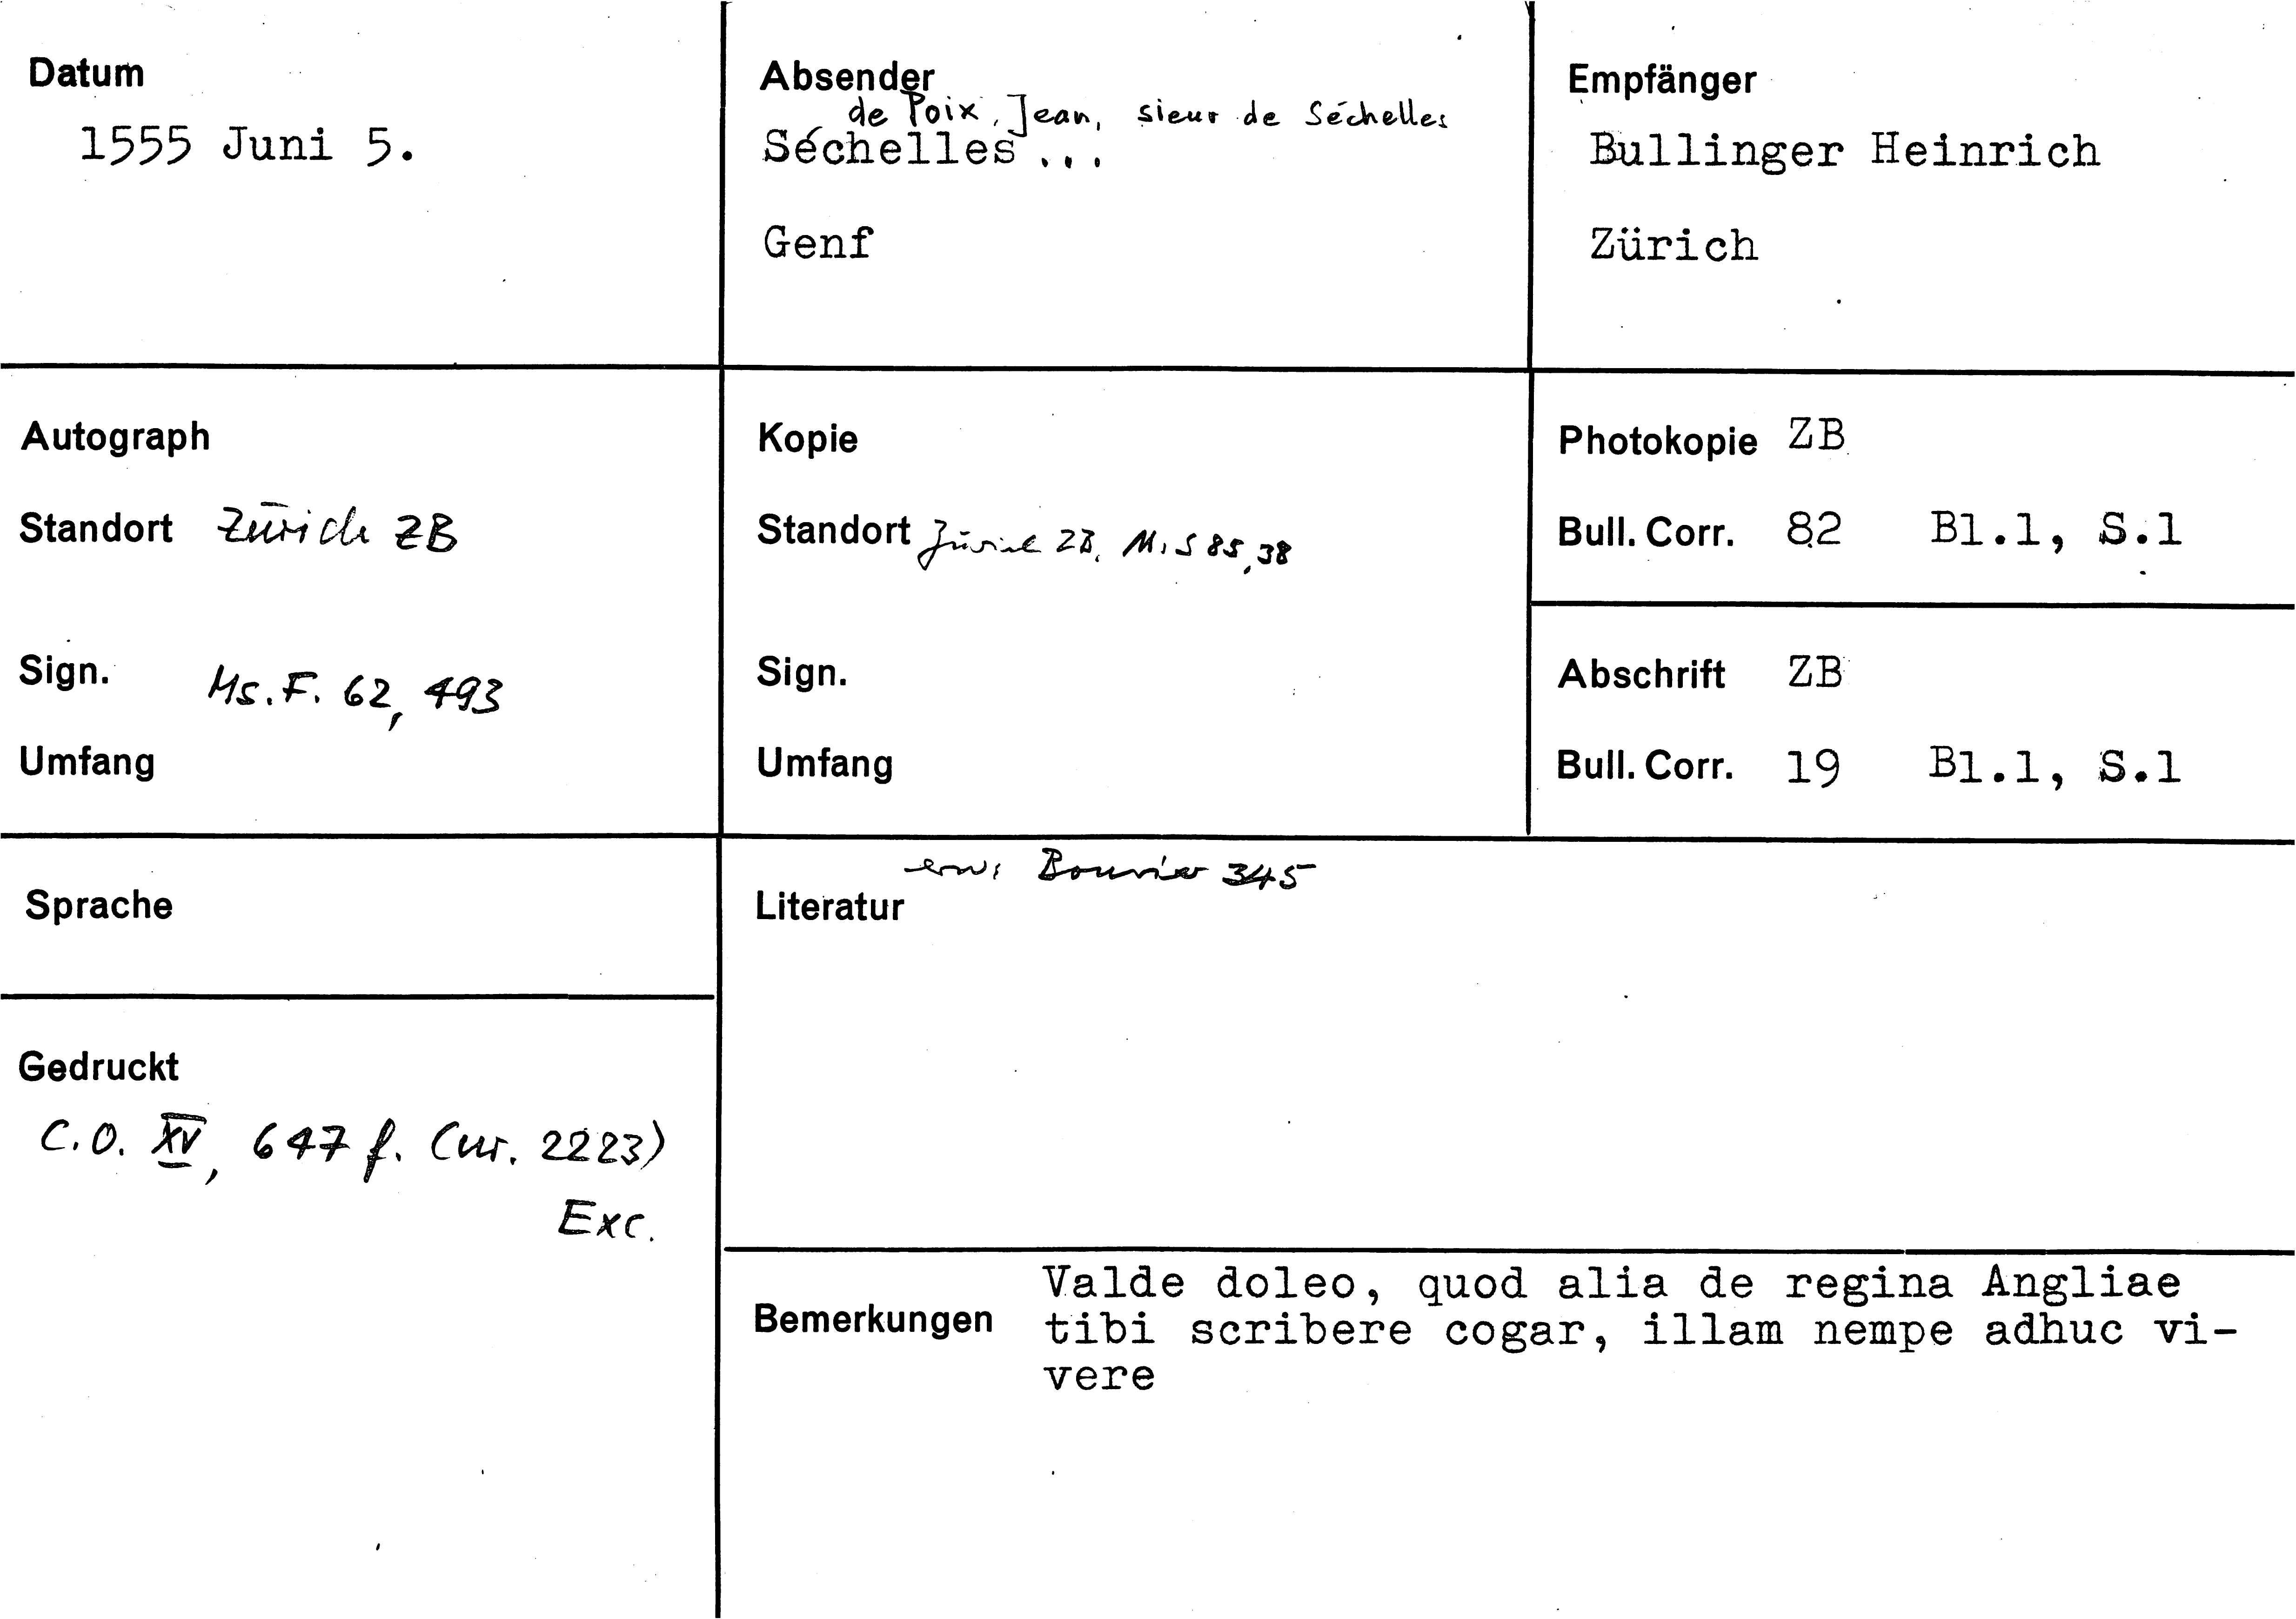 Datum
1555 Juni 5.
Absender
de Poix, Jean, sieur de Séchelles
Séchelles ...
Genf
Empfänger
Bullinger Heinrich
Zürich
Autograph
Standort Zürich ZB
Sign. Ms. F. 62, 493
Umfang
Kopie
Standort Zürich ZB, Ms S 85, 38
Sign.
Umfang
Photokopie ZB
Bull. Corr. 82 Bl.1, S.1
Abschrift ZB
Bull. Corr. 19 Bl.1, S.1
Sprache
Gedruckt
C.O. XV, 647 f. (nr. 2223)
Exc.
erw: Bouvier 345
Literatur
Bemerkungen
Valde doleo, quod alia de regina Angliae
tibi scribere cogar, illam nempe adhuc vi-
vere